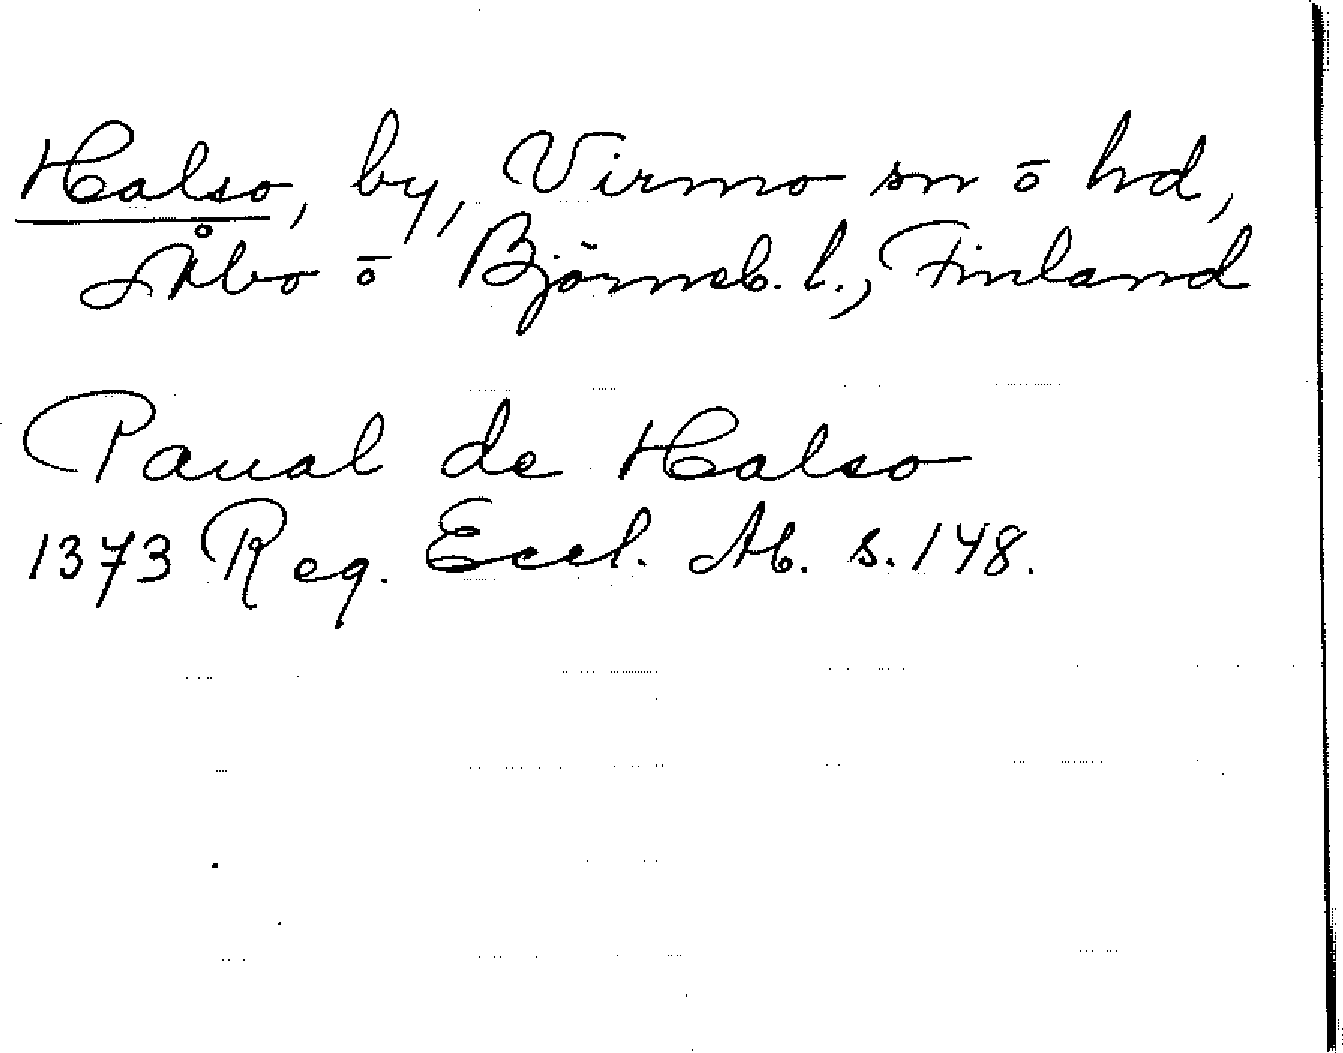 Halso, by, Virmo sn ō hd,
Åbo ō Björneb. l., Finland
Paual de Halso
1373 Reg. Eccl. Ab. s. 148.